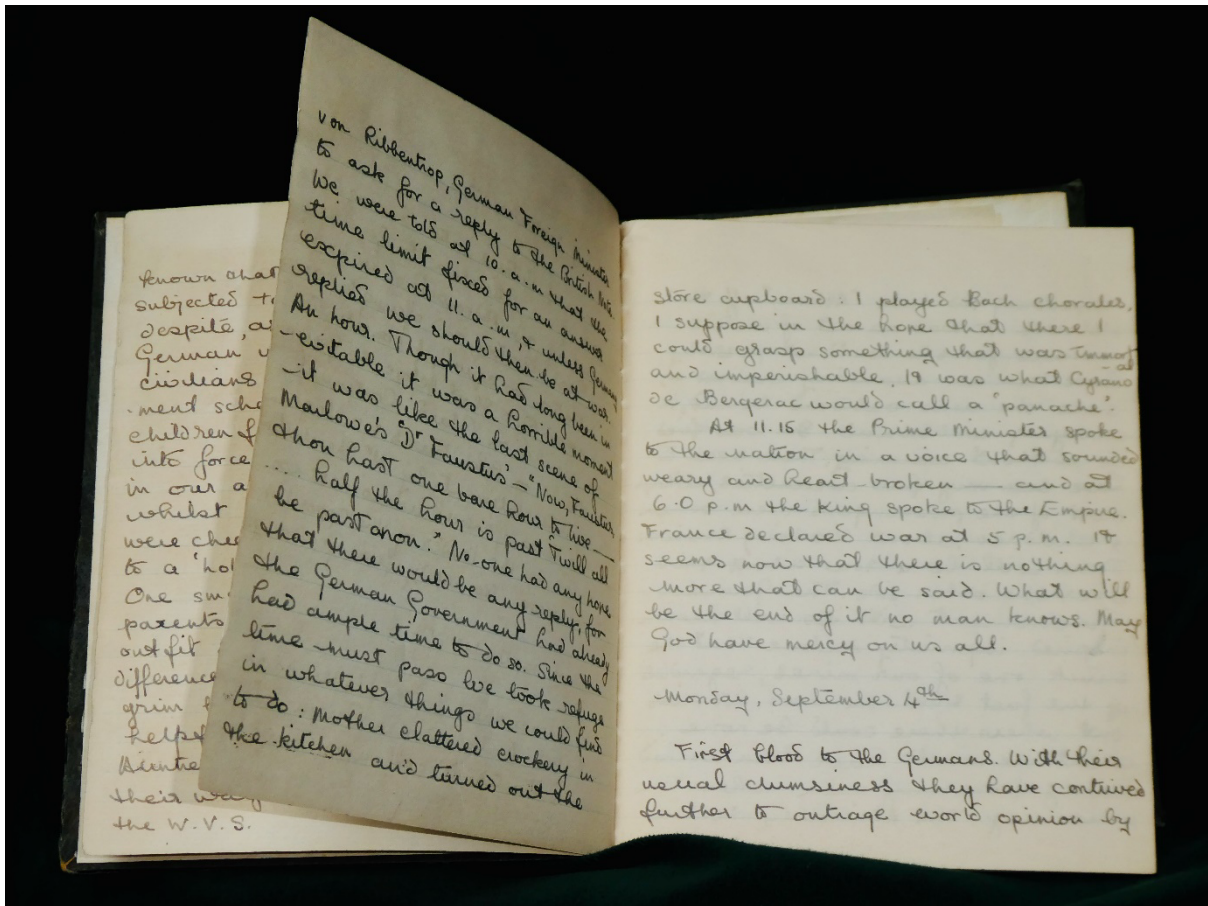 known that
subjected to
despite, a
German
civilians
-ment sche
children f
into force
in our a
whilst
were che
to a 'ho
One sm
parents
outfit
difference
grim
helpf
Auntie
their way
the W.V.S.
von Ribbentrop, German Foreign Minister
to ask for a reply to the British Note.
We were told at 10. a.m that the
time limit fixed for an answer
expired at 11. a.m, & unless Germany
replied we should then be at war.
An hour. Though it had long been in
-evitable it was a horrible moment
-it was like the last scene of
Marlowe's "Dr Faustus" - "Now, Faustus
thou hast one bare hour to live —
.... half the hour is past 'Twill all
be past anon." No-one had any hope
that there would be any reply, for
the German Government had already
had ample time to do so. Since the
time must pass we took refuge
in whatever things we could find
to do: Mother clattered crockery in
the kitchen and turned out the
store cupboard. I played Bach chorales,
I suppose in the hope that there I
could grasp something that was immort
-al
and imperishable. It was what Cyrano
de Bergerac would call a 'panache'.
At 11.15 the Prime Minister spoke
to the nation in a voice that sounded
weary and heart-broken — and at
6.0 p.m the King spoke to the Empire.
France declared war at 5 p.m. It
seems now that there is nothing
more that can be said. What will
be the end of it no man knows. May
God have mercy on us all.
Monday, September 4th
First blood to the Germans. With their
usual clumsiness they have contrived
further to outrage world opinion by